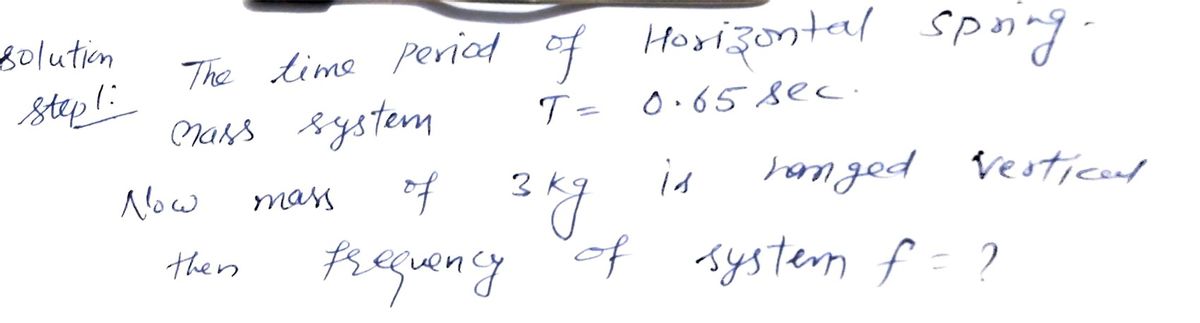 solution The time period of Horizontal spring-
step 1: mass system T = 0.65 sec.
Now mass of 3 kg is hanged vertical
then frequency of system f = ?